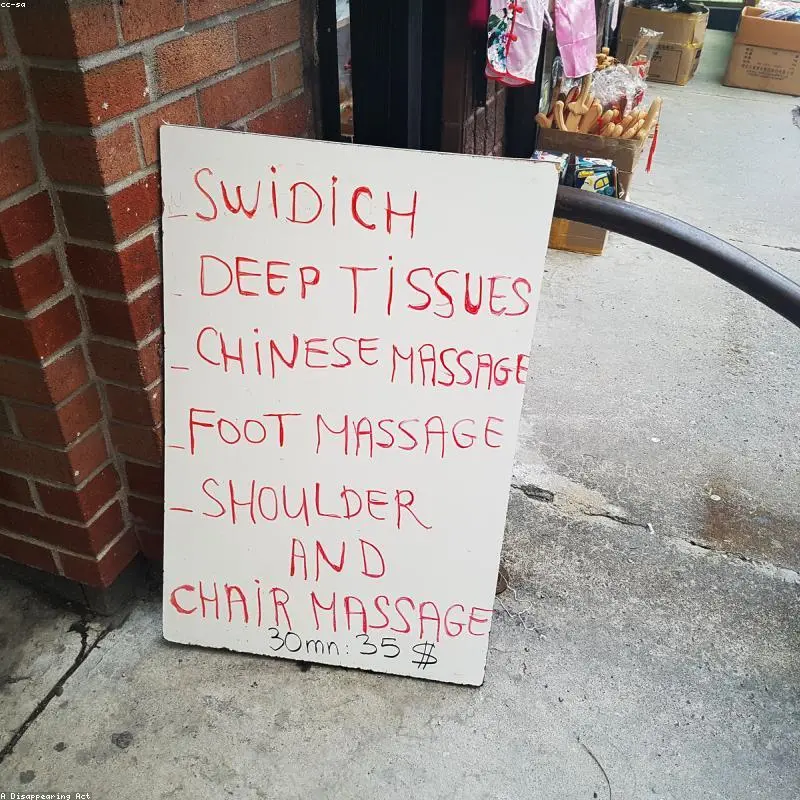 cc-sa
- SWiDiCH
- DEEP TiSSUES
- CHiNESE MASSAGE
- FOOT MASSAGE
- SHOULDER
AND
CHAiR MASSAGE
30mn: 35 $
A Disappearing Act